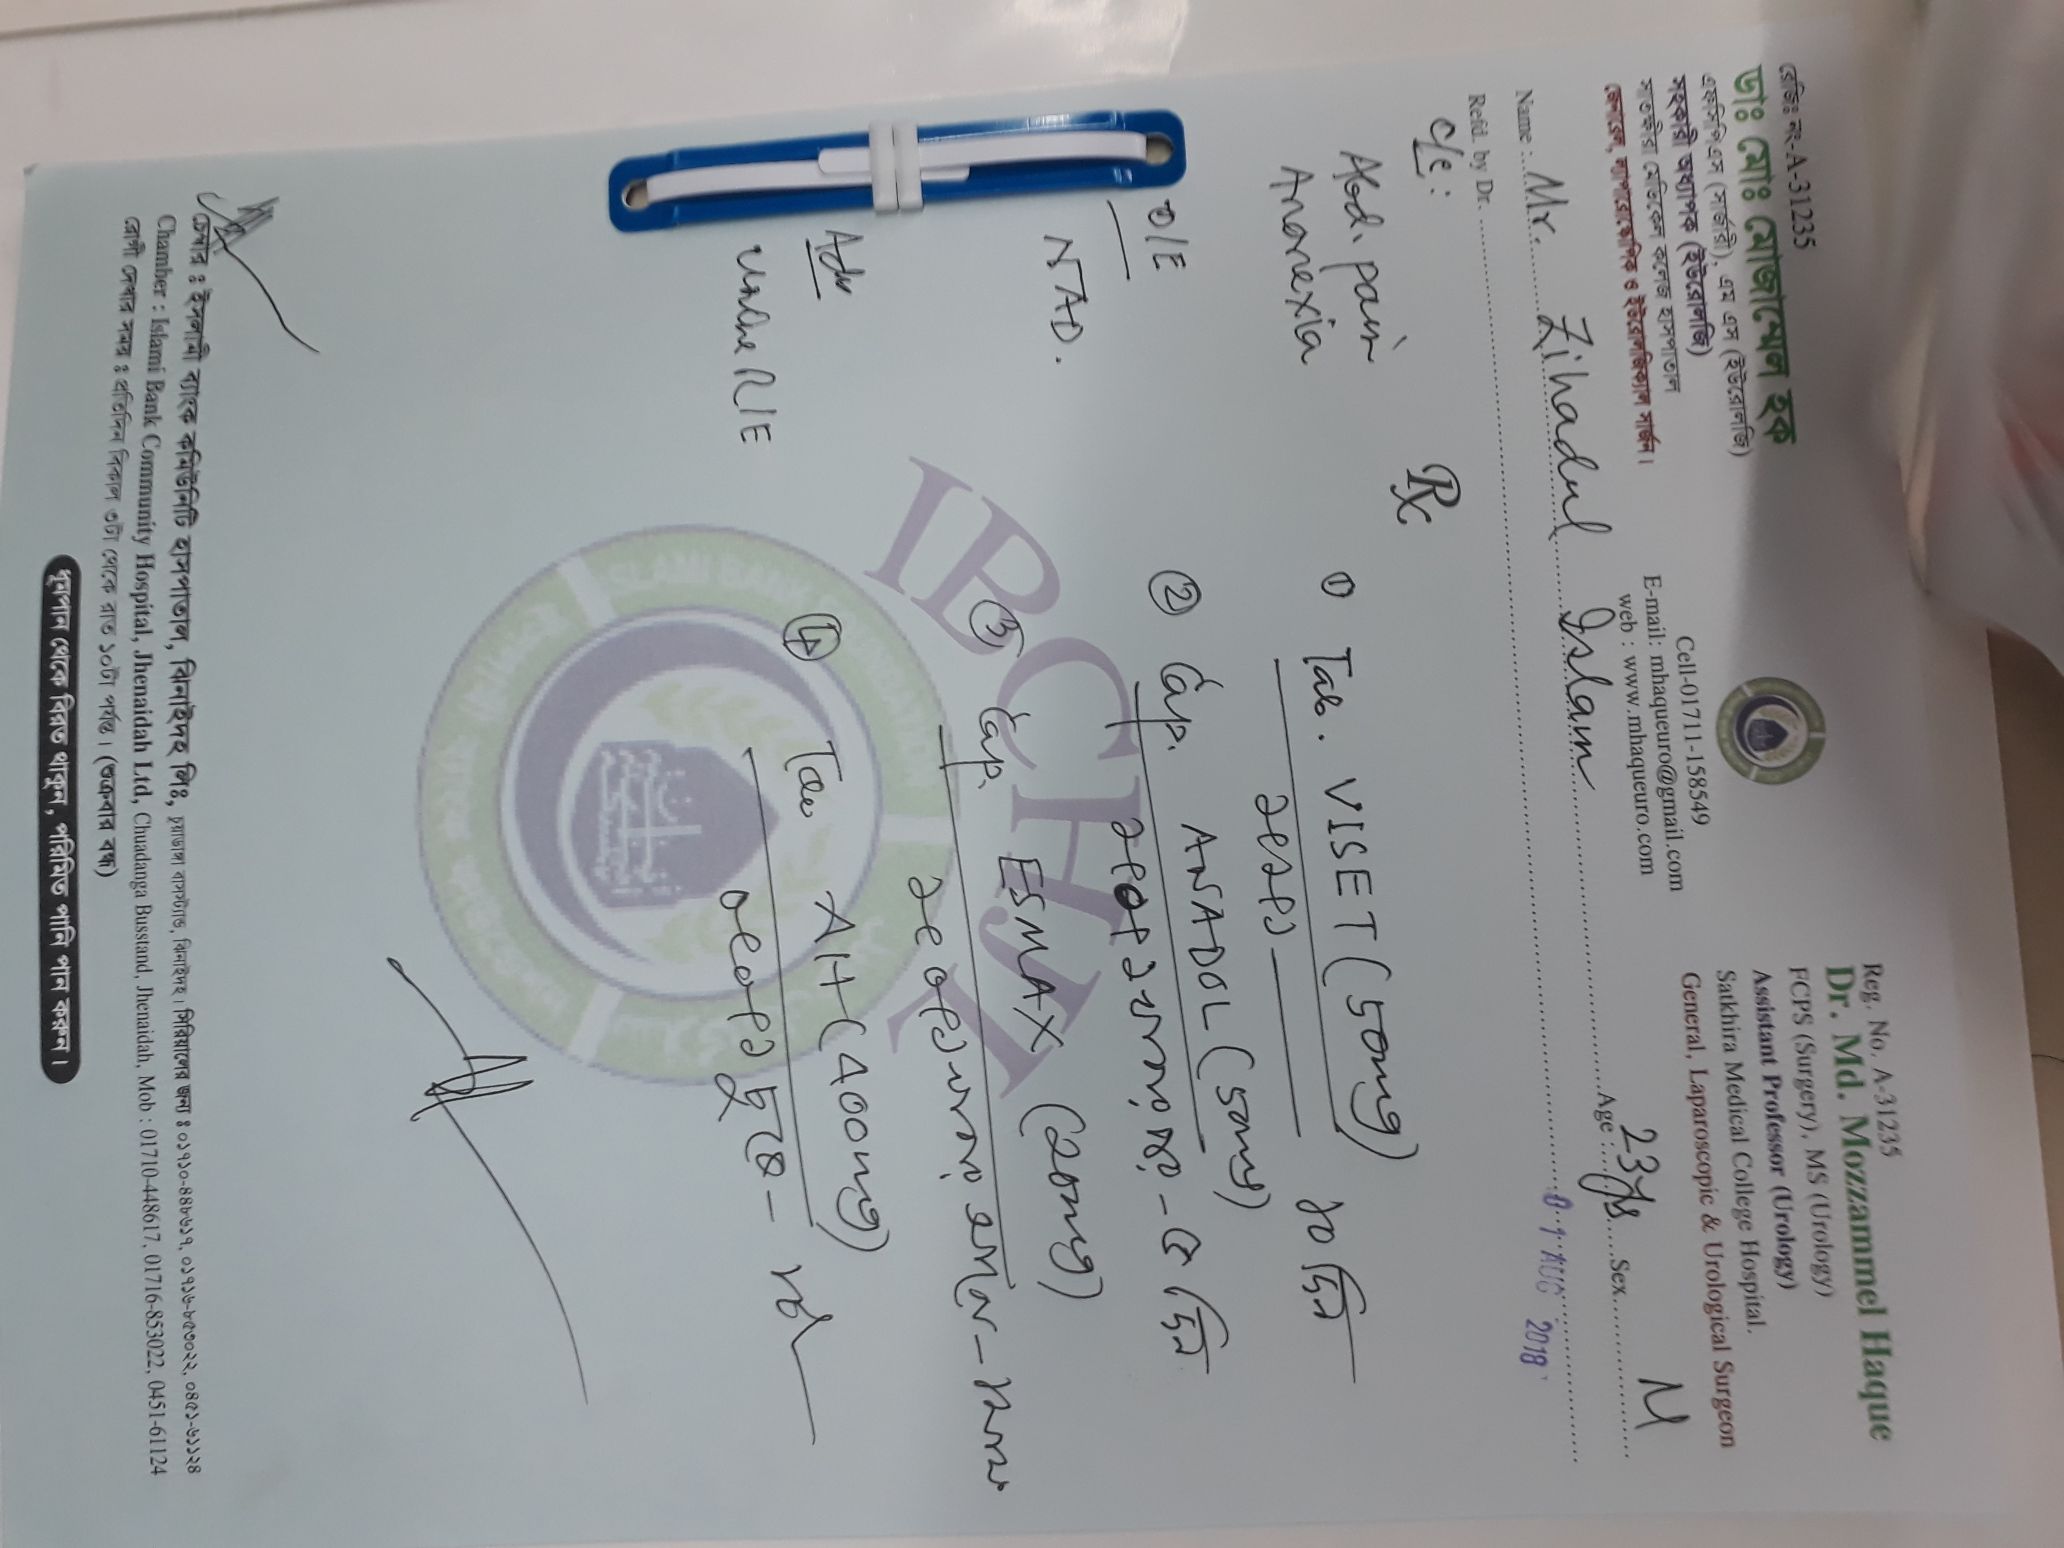 রেজিঃ নং-A-31235
ডাঃ মোঃ মোজাম্মেল হক
এফসিপিএস (সার্জারী), এম এস (ইউরোলজি)
সহকারী অধ্যাপক (ইউরোলজি)
সাতক্ষীরা মেডিকেল কলেজ হাসপাতাল
জেনারেল, ল্যাপারোস্কপিক ও ইউরোলজিক্যাল সার্জন।
Cell-01711-158549
E-mail: mhaqueuro@gmail.com
web : www.mhaqueuro.com
Reg. No. A-31235
Dr. Md. Mozzammel Haque
FCPS (Surgery), MS (Urology)
Assistant Professor (Urology)
Satkhira Medical College Hospital.
General, Laparoscopic & Urological Surgeon
Name : Mr. Zihadul Islam Age : 23 yrs Sex M
Refd. by Dr. 01 AUG 2018
C/C:
Abd. pain
Anorexia
O/E
NAD.
Adv
Urine R/E
Rx
① Tab. VISET (50mg)
১+১+১ ১০ দিন
② Cap. ANADOL (50mg)
③ Cap. ESMAX (20mg)
④ Tab AH (400mg)
IBCHJL
চেম্বার : ইসলামী ব্যাংক কমিউনিটি হাসপাতাল, ঝিনাইদহ লিঃ, চুয়াডাঙ্গা বাসস্ট্যান্ড, ঝিনাইদহ। সিরিয়ালের জন্য : ০১৭১০-৪৪৮৬১৭, ০১৭১৬-৮৫৩০২২, ০৪৫১-৬১১২৪
Chamber : Islami Bank Community Hospital, Jhenaidah Ltd, Chuadanga Busstand, Jhenaidah, Mob : 01710-448617, 01716-853022, 0451-61124
রোগী দেখার সময় : প্রতিদিন বিকাল ৩টা থেকে রাত ১০টা পর্যন্ত। (শুক্রবার বন্ধ)
ধুমপান থেকে বিরত থাকুন, পরিমিত পানি পান করুন।